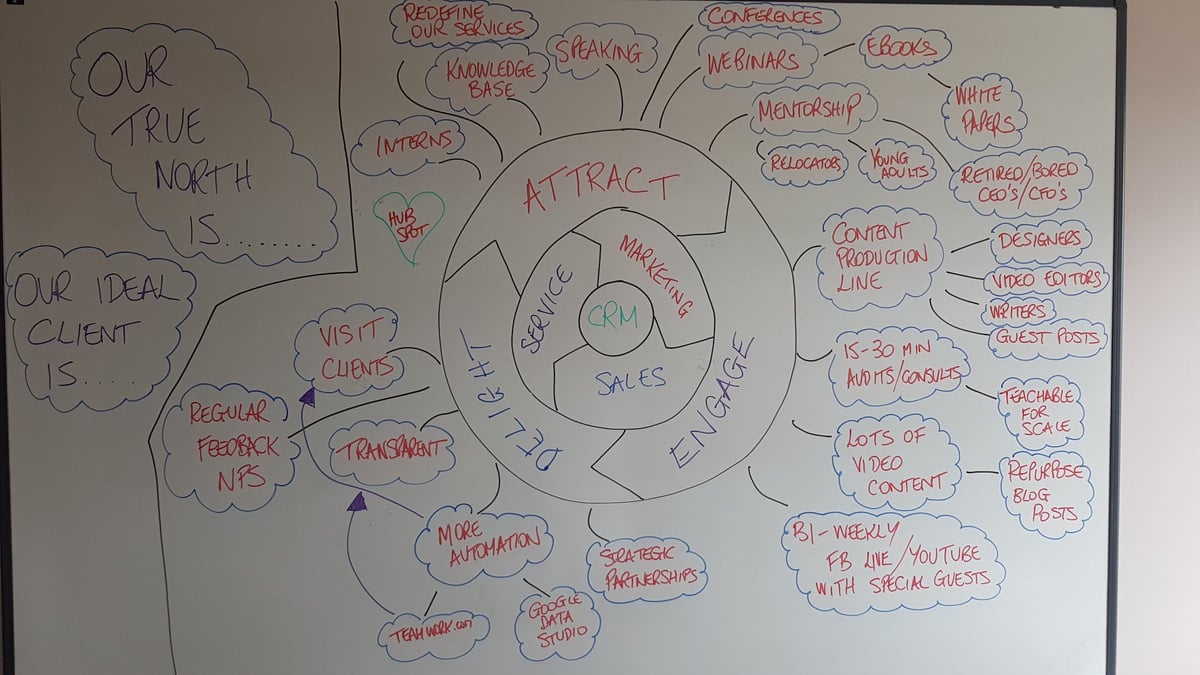 OUR
TRUE
NORTH
IS........
OUR IDEAL
CLIENT
IS....
REDEFINE
OUR SERVICES
KNOWLEDGE
BASE
SPEAKING
CONFERENCES
WEBINARS
EBOOKS
WHITE
PAPERS
INTERNS
HUB
SPOT
MENTORSHIP
RELOCATORS
YOUNG
ADULTS
RETIRED/BORED
CEO'S/CFO'S
ATTRACT
ENGAGE
DELIGHT
MARKETING
SALES
SERVICE
CRM
CONTENT
PRODUCTION
LINE
DESIGNERS
VIDEO EDITORS
WRITERS
GUEST POSTS
15-30 MIN
AUDITS/CONSULTS
TEACHABLE
FOR
SCALE
LOTS OF
VIDEO
CONTENT
REPURPOSE
BLOG
POSTS
BI-WEEKLY
FB LIVE/YOUTUBE
WITH SPECIAL GUESTS
VISIT
CLIENTS
REGULAR
FEEDBACK
NPS
TRANSPARENT
MORE
AUTOMATION
TEAMWORK.COM
GOOGLE
DATA
STUDIO
STRATEGIC
PARTNERSHIPS